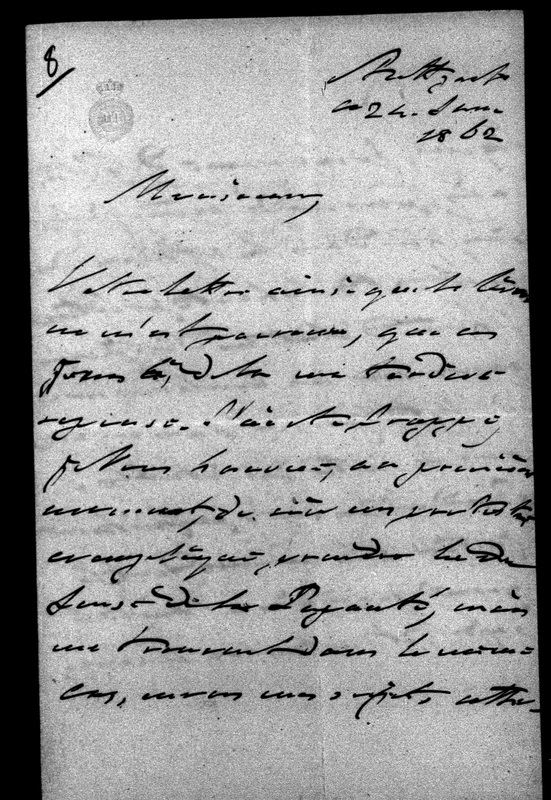 8
Stuttgart
ce 24. Juin
1862
Monsieur,
Votre lettre ainsi que le livre
ne m'est parvenu, que ces
jours ci, de là ma tardive
réponse. J'ai été frappé,
je Vous l'avoue, au premier
moment, de voir un protestant
évangélique, prendre la
de la Papauté, mais
me trouvant dans le même
cas, envers mes sujets catho-